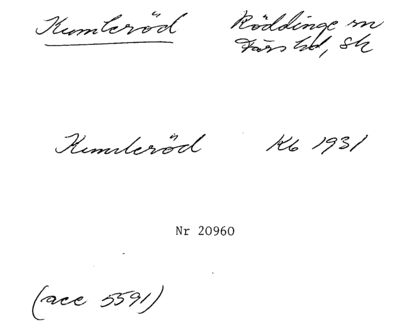 Kumleröd Röddinge sn
Färs hd, Sk
Kumleröd Kb 1931
Nr 20960
(acc 5591)